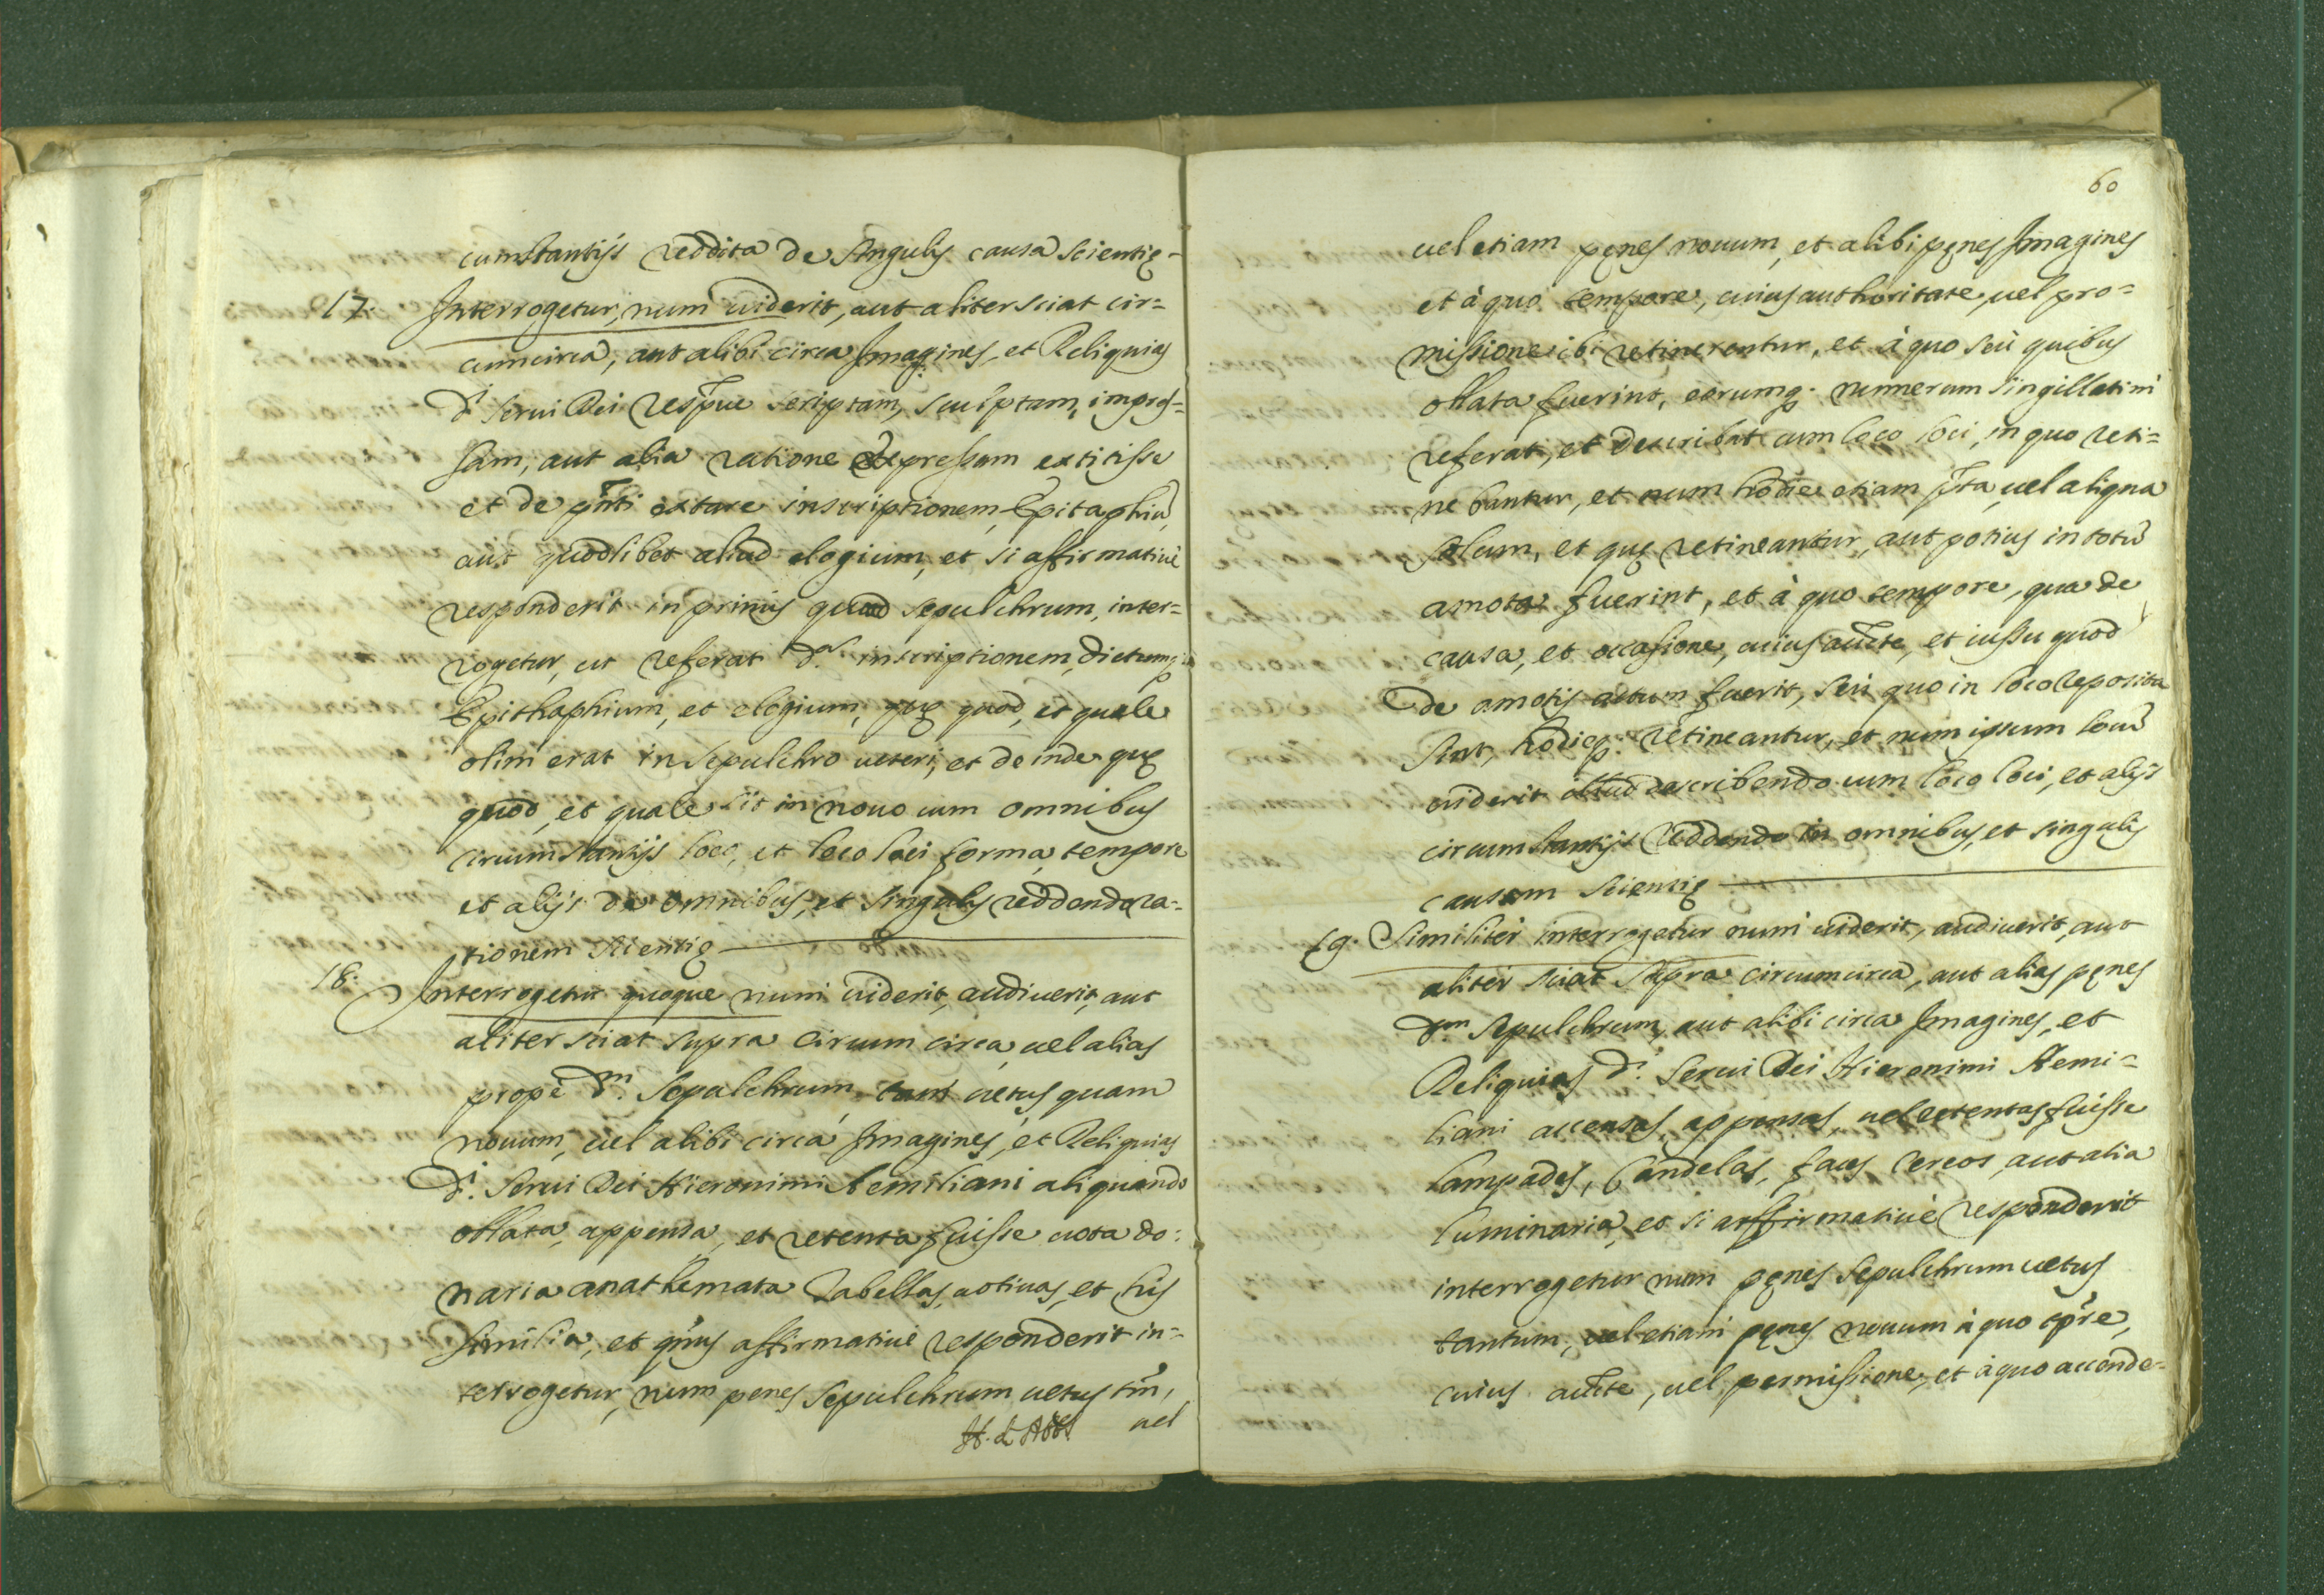 cumstantijs reddita de singulis causa scientię-
17. Interrogetur, num uiderit, aut aliter sciat cir=
cumcirca, aut alibi circa Imagines, et Reliquias
d.ⁱ serui Dei resp̄ue scriptam, sculptam, impres=
sam, aut alia ratione expressam extitisse
et de pn̄ti extare inscriptionem, Epitaphiū,
aut quodlibet aliud elogium, et si affirmatiuè
responderit in primis quoad sepulchrum, inter=
rogetur, ut referat d.ᵃᵐ inscriptionem, dictumq;
Epithaphium, et elogium, quę quod, et quale
olim erat in sepulchro ueteri, et deinde quę
quod, et quale sit in nouo cum omnibus
circumstantijs loco, et loco loci forma, tempore
et alijs de omnibus, et singulis reddendo ra=
tionem scientię
18. Interrogetur quoque num uiderit, audiuerit, aut
aliter sciat supra circum circa, uel alias
propè d.ᵐ sepulchrum, tam uetus quam
nouum, uel alibi circa Imagines, et Reliquias
d.ⁱ Serui Dei Hieronimi Aemiliani aliquando
oblata, appensa, et retenta fuisse uota do:
naria anathemata Tabellas uotiuas, et his
similia, et q̄nus affirmatiuè responderit in=
terrogetur, num penes sepulchrum uetus tm̄,
uel
60
uel etiam pęnes nouum, et alibi pęnes Imagines
et à quo tempore, cuius authoritate, uel pro=
missione ibi retinerentur, et à quo seù quibus
oblata fuerint, eorumq; numerum singillatim
referat, et describat cum loco loci, in quo reti=
nebantur, et num hodie etiam p̄ta, uel aliqua
solum, et quę retineantur, aut potius in totū
amota fuerint, et à quo tempore, qua de
causa, et occasione, cuius aucte, et iussu quod
de amotis actum fuerit, seù quo in loco reposita
sint, hodieq; retineantur, et num ipsum locū
uiderit illud describendo cum loco loci, et alijs
circumstantijs reddendo in omnibus, et singulis
causam scientię
19. Similitèr interrogetur num uiderit, audiuerit, aut
alitèr sciat supra circumcirca, aut alias pęnes
d.ᵘᵐ sepulchrum, aut alibi circa Imagines, et
Reliquias d.ⁱ Serui Dei Hieronimi Aemi=
liani accensas, appensas, uel retentas fuisse
lampades, Candelas, faces Cereos, aut alia
luminaria, et si affirmatiuè responderit
interrogetur num pęnes sepulchrum uetus
tantum, uel etiam pęnes nouum à quo tp̄re,
cuius aucte, uel permissione, et à quo accende=